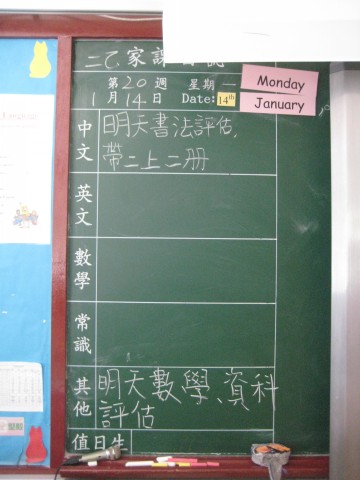 二乙家課
第20週 星期一 Monday
1月14日 Date: 14th January
中文 明天書法評估,
帶二上二冊
英文
數學
常識
其他 明天數學、資科
評估
值日生